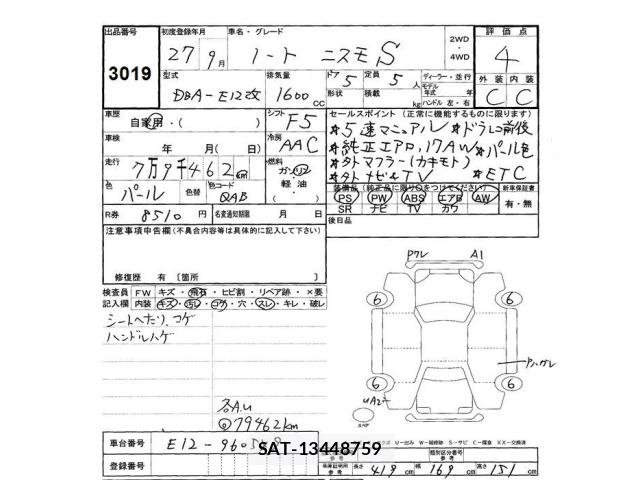 出品番号
3019
初度登録年月
27年9月
車名・グレード
ノート ニスモS
2WD
・
4WD
評価点
4
型式
DBA-E12改
排気量
1600cc
ドア 5
定員 5人
形状
積載 kg
ディーラー・並行
モデル年式 年
ハンドル 左・右
外装 内装
C C
車歴
自家用・( )
シフト
F5
車検
年 月( 日)
冷房
AAC
走行
7万9千462km
燃料
ガソリン
軽油
( )
色
パール
色替
色コード
QAB
R券 8510円
名変通知期限 月 日
セールスポイント (正常に機能するものに限ります)
*5速マニュアル *ドラレコ前後
*純正エアロ、17AW *パール色
*外マフラー(カキモト)
*外ナビ&TV *ETC
装備品(純正品に限り○をつけてください)
PS PW ABS エアB AW
SR ナビ TV カワ
新車保証書
有・無
後日品
注意事項申告欄(不具合内容等は具体的に記入して下さい)
修復歴 有 〔箇所 〕
検査員記入欄
FW キズ・飛石・ヒビ割・リペア跡・×要
内装 キズ・汚レ・コゲ・穴・スレ・キレ・破レ
シートへたり、コゲ
ハンドルハゲ
各A.U
@79462km
Pワレ A1
6 6
6 6
Pハガレ
UA2
スペア
車台番号 E12-960
SAT-13448759
登録番号
U−凹み W−補修跡 S−サビ C−腐食 XX−交換済
類別区分番号
参考
車庫証明用参考
長さ 419cm 幅 169cm 高さ 151cm